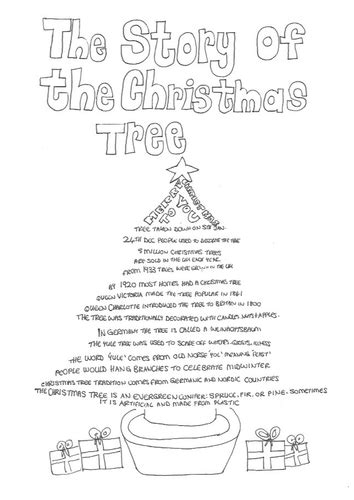 The Story of
the Christmas
Tree
MERRY CHRISTMAS
TO YOU
TREE TAKEN DOWN ON 5TH JAN.
24TH DEC PEOPLE USED TO DECORATE THE TREE
8 MILLION CHRISTMAS TREES
ARE SOLD IN THE UK EACH YEAR.
FROM 1933 TREES WERE GROWN IN THE UK
BY 1920 MOST HOMES HAD A CHRISTMAS TREE
QUEEN VICTORIA MADE THE TREE POPULAR IN 1841
QUEEN CHARLOTTE INTRODUCED THE TREE TO BRITAIN IN 1800
THE TREE WAS TRADITIONALLY DECORATED WITH CANDLES NUTS APPLES.
IN GERMANY THE TREE IS CALLED A WEINACHTSBAUM
THE YULE TREE WAS USED TO SCARE OFF WITCHES, GHOSTS, ILLNESS
THE WORD 'YULE' COMES FROM OLD NORSE 'YUL' MEANING 'FEAST'
PEOPLE WOULD HANG BRANCHES TO CELEBRATE MIDWINTER
CHRISTMAS TREE TRADITION COMES FROM GERMANIC AND NORDIC COUNTRIES
THE CHRISTMAS TREE IS AN EVERGREEN CONIFER: SPRUCE, FIR, OR PINE. SOMETIMES
IT IS ARTIFICIAL AND MADE FROM PLASTIC